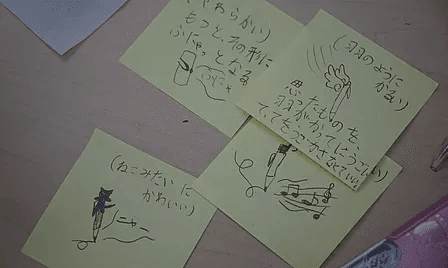 (やわらかい)
もつと、その形に
ふにゃっとなる
ふにゃ
(羽のように
かるい)
思ったものを、
羽がかってにうごいて
(ねこみたいに
かわいい)
ニャー